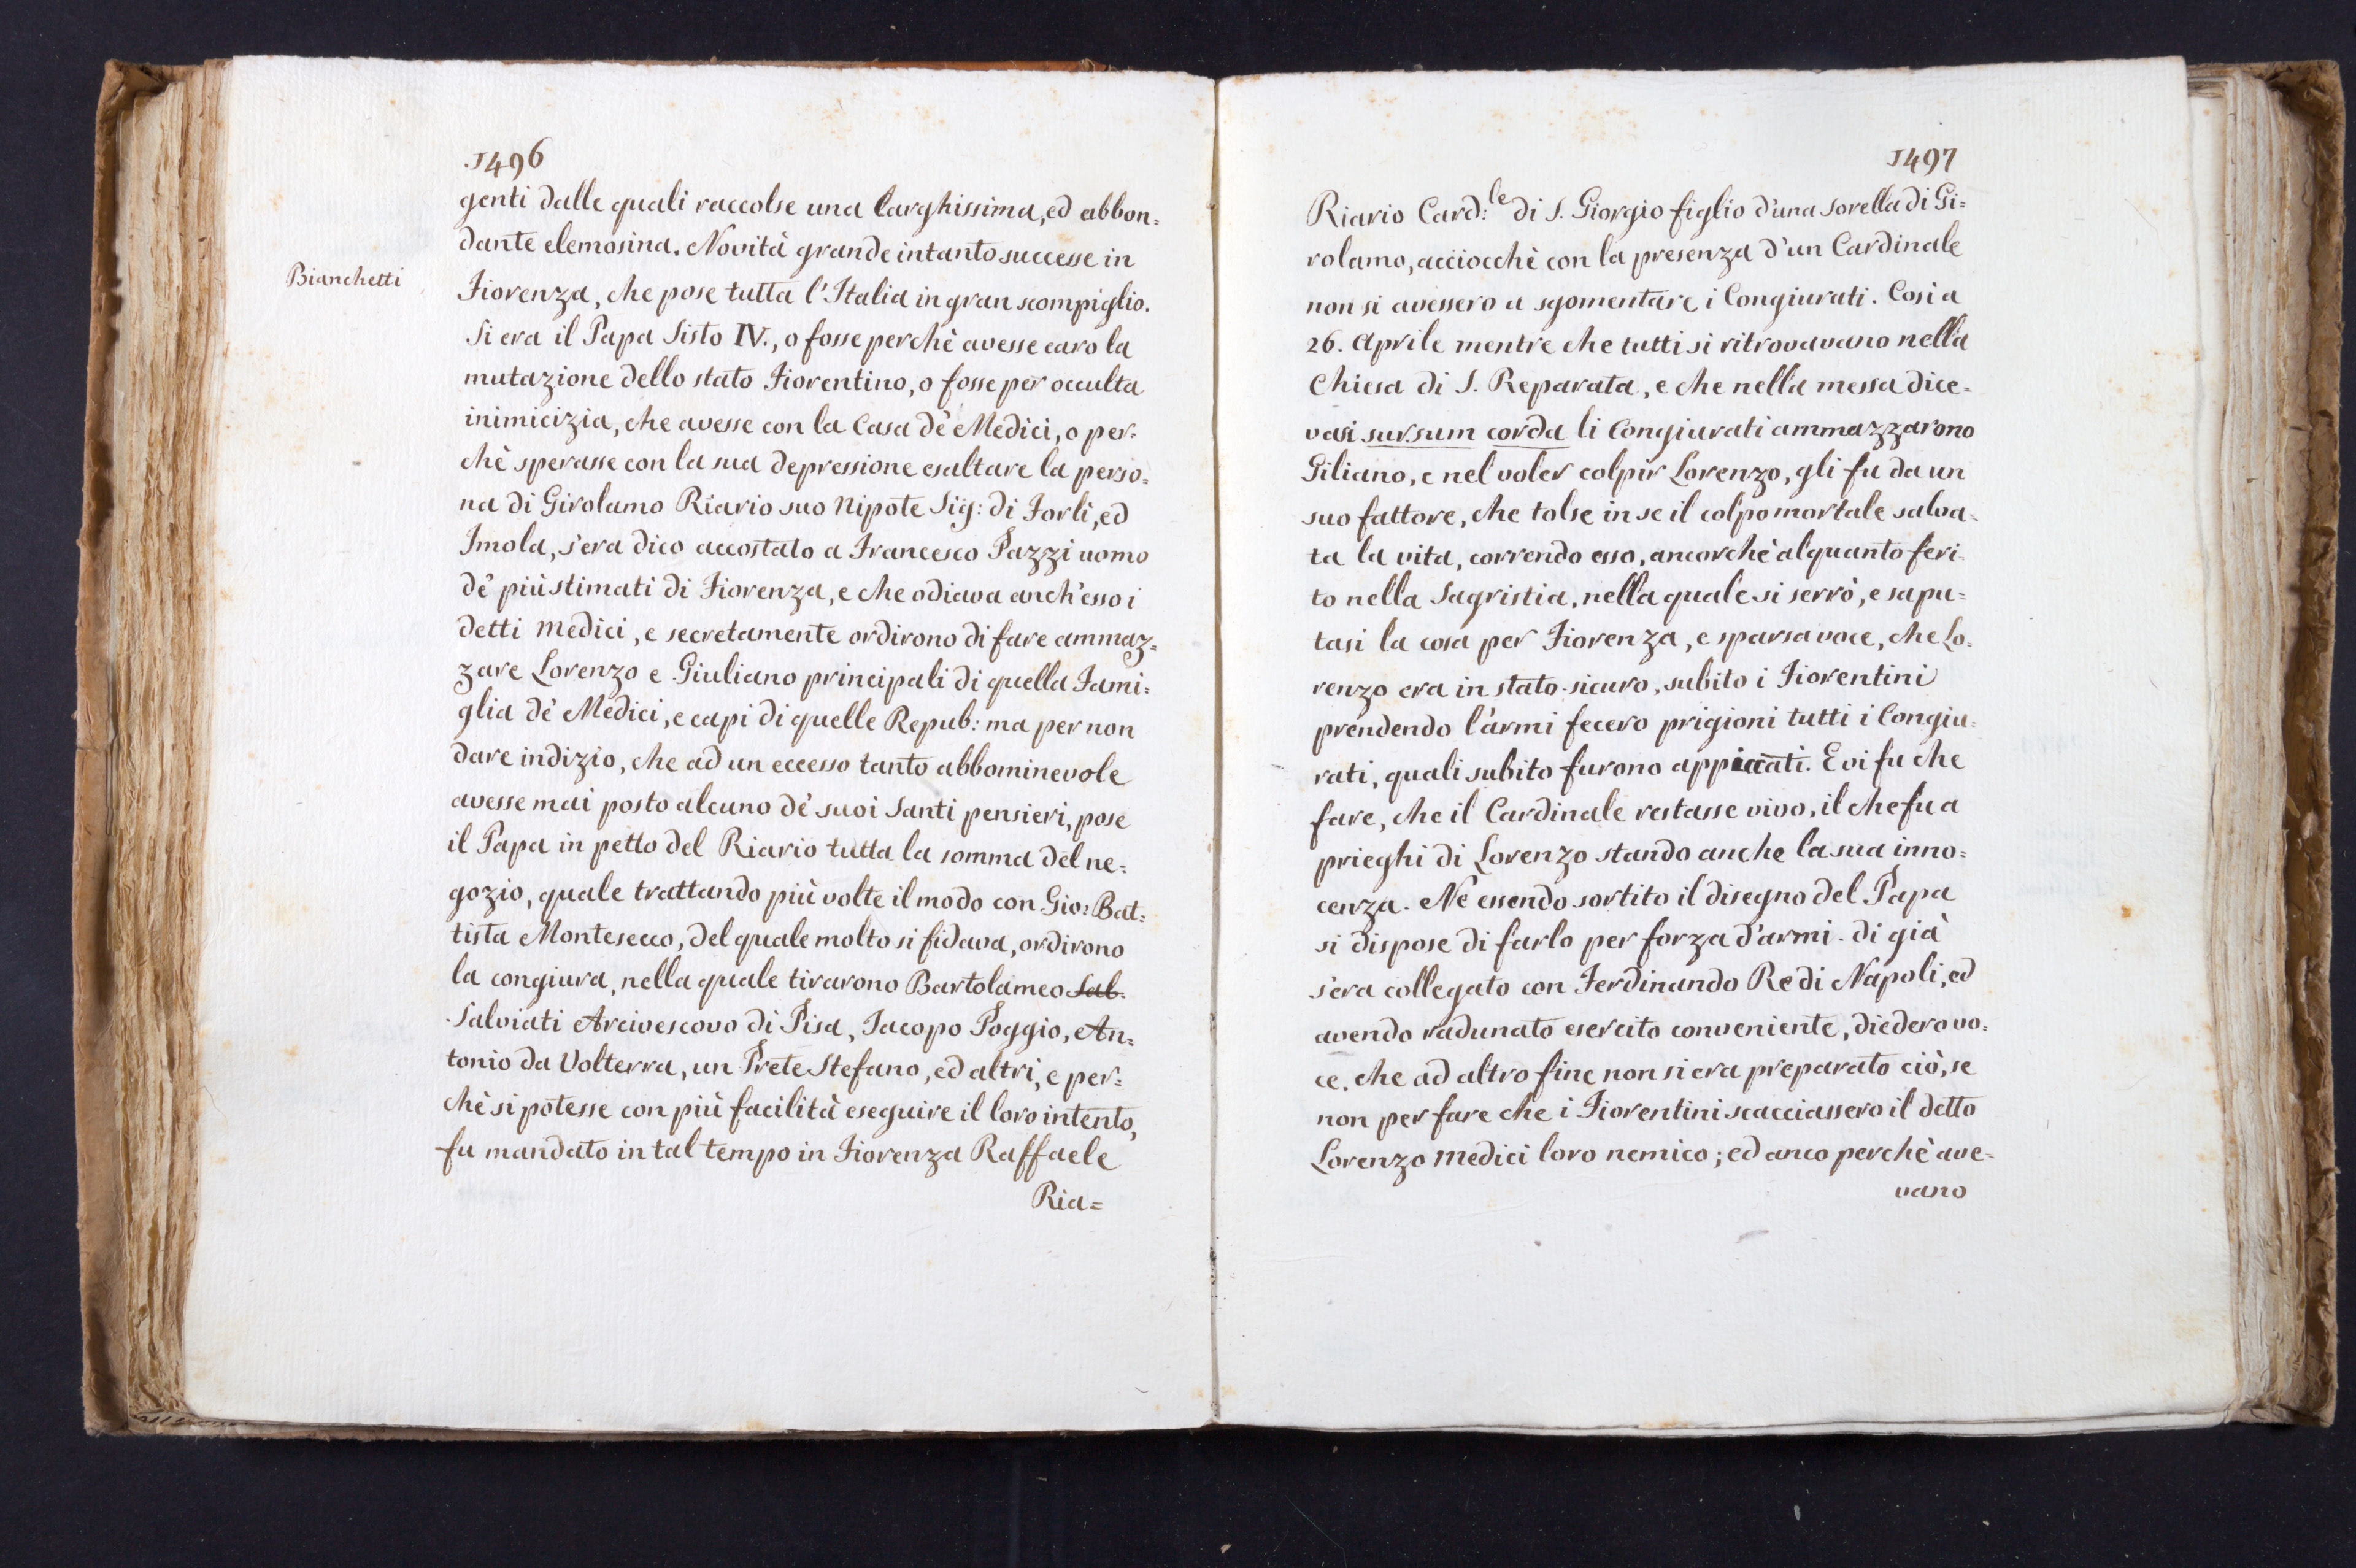 1496
genti dalle quali raccolse una larghissima, ed abbon=
dante elemosina. Novità grande intanto successe in
Bianchetti
Fiorenza, che pose tutta l'Italia in gran scompiglio.
Si era il Papa Sisto IV., o fosse perchè avesse caro la
mutazione dello stato Fiorentino, o fosse per occulta
inimicizia, che avesse con la Casa de' Medici, o per=
chè sperasse con la sua depressione esaltare la perso=
na di Girolamo Riario suo Nipote Sig: di Forlì, ed
Imola, s'era dico accostato a Francesco Pazzi uomo
de' più stimati di Fiorenza, e che odiava anch'esso i
detti Medici, e secretamente ordirono di fare ammaz=
zare Lorenzo e Giuliano principali di quella Fami=
glia de' Medici, e capi di quelle Repub: ma per non
dare indizio, che ad un eccesso tanto abbominevole
avesse mai posto alcuno de' suoi Santi pensieri, pose
il Papa in petto del Riario tutta la somma del ne=
gozio, quale trattando più volte il modo con Gio: Bat=
tista Montesecco, del quale molto si fidava, ordirono
la congiura, nella quale tirarono Bartolameo Sal.
Salviati Arcivescovo di Pisa, Iacopo Poggio, An=
tonio da Volterra, un Prete Stefano, ed altri, e per=
chè si potesse con più facilità eseguire il loro intento,
fu mandato in tal tempo in Fiorenza Raffaele
Ria=
1497
Riario Card:le di S. Giorgio figlio d'una sorella di Gi=
rolamo, acciocchè con la presenza d'un Cardinale
non si avessero a sgomentare i Congiurati. Così a
26. Aprile mentre che tutti si ritrovavano nella
Chiesa di S. Reparata, e che nella messa dice=
vasi sursum corda li Congiurati ammazzarono
Giliano, e nel voler colpir Lorenzo, gli fu da un
suo fattore, che tolse in se il colpo mortale salva=
ta la vita, correndo esso, ancorchè alquanto feri=
to nella Sagristia, nella quale si serrò, e sapu=
tasi la cosa per Fiorenza, e sparsa voce, che Lo=
renzo era in stato sicuro, subito i Fiorentini
prendendo l'armi fecero prigioni tutti i Congiu=
rati, quali subito furono appiccati. E vi fu che
fare, che il Cardinale restasse vivo, il che fu a
prieghi di Lorenzo stando anche la sua inno=
cenza. Nè essendo sortito il disegno del Papa
si dispose di farlo per forza d'armi. di già
s'era collegato con Ferdinando Re di Napoli, ed
avendo radunato esercito conveniente, diedero vo=
ce, che ad altro fine non si era preparato ciò, se
non per fare che i Fiorentini scacciassero il detto
Lorenzo Medici loro nemico; ed anco perchè ave=
vano